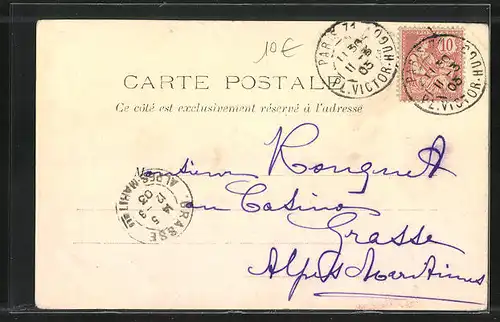 10€
PARIS 71
PL. VICTOR-HUGO
11 50
11 3
03
10
PARIS 71
PL. VICTOR-HUGO
11 3
03
CARTE POSTALE
Ce côté est exclusivement réservé à l'adresse
Monsieur Rouquet
au Casino
Grasse
Alpes Maritimes
GRASSE
ALPES-MARITIMES
5
12 3
03